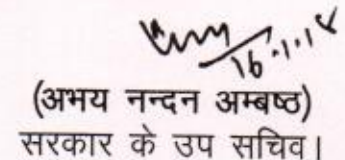 16.1.14
(अभय नन्दन अम्बष्ठ)
सरकार के उप सचिव।